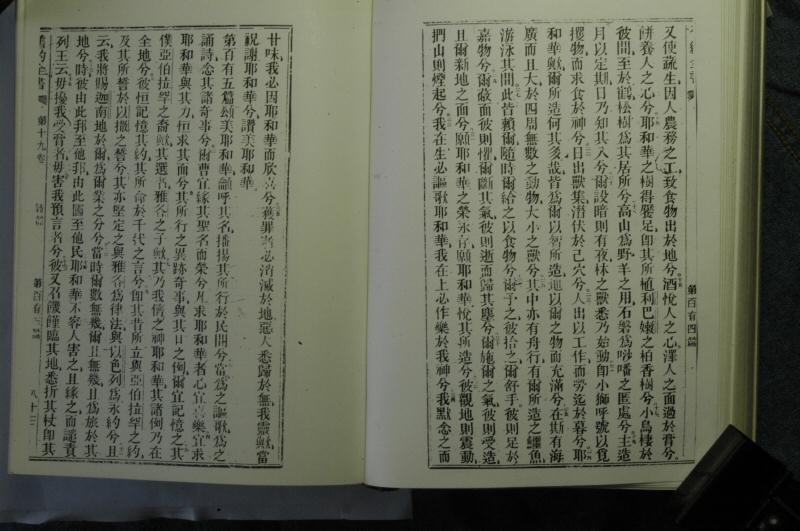 又使蔬生因人農務之工致食物出於地兮酒悅人之心澤人之面過於膏兮
餅養人之心兮耶和華之樹得饜足卽其所植利巴嫩之柏香樹兮小鳥棲於
彼間至於鶴松樹爲其居所兮高山爲野羊之用石磐爲𠵽噃之匿處兮主造
月以定期日乃知其入兮爾設暗則有夜林之獸悉乃始動卽小獅呼號以覓
攫物而求食於神兮日出獸集潛伏於己穴兮人出以工作而勞迄於暮兮耶
和華歟爾所造何其多哉皆爲爾以智所造地以爾之物而充滿兮在斯有海
廣而且大於四周無數之動物大小之獸兮其中亦有舟行有爾所造之鱷魚
游泳其間此皆賴爾隨時爾給之以食物兮爾予之彼拾之爾舒手彼則足於
嘉物兮爾蔽面彼則懼爾斷其氣彼則逝而歸其塵兮爾施爾之氣彼則受造
且爾新地之面兮願耶和華之榮永存願耶和華悅其所造兮彼觀地則震動
捫山則煙起兮我在生必謳歌耶和華我在上必作樂於我神兮我默念之而
第百有四篇
甘味我必因耶和華而欣喜兮獲罪者必消滅於地惡人悉歸於無我靈歟當
祝謝耶和華兮讚美耶和華
第百有五篇頌美耶和華籲呼其名播揚其所行於民間兮當爲之謳歌爲之
誦詩念其諸奇事兮爾曹宜緣其聖名而榮兮凡求耶和華者心宜喜樂宜求
耶和華與其力恒求其面兮其所行之異跡奇事與其口之例爾宜記憶之其
僕亞伯拉罕之裔歟其選者雅各之子歟其乃我儕之神耶和華其諸例乃在
全地兮彼恒記憶其約其所命於千代之言兮卽其昔所立與亞伯拉罕之約
及其所誓於以撒之誓兮其亦堅定之與雅各爲律法與以色列爲永約兮且
云我將賜迦南地於爾爲爾業之分兮當時爾數無幾爾且無幾且爲旅於其
地兮時彼由此邦至他邦由此國至他民耶和華不容人害之且緣之而譴責
列王云毋擾我受膏者毋害我預言者兮彼又召饑饉臨其地悉折其杖卽其
舊約全書 第十九卷 詩篇 第百有五篇 八十三